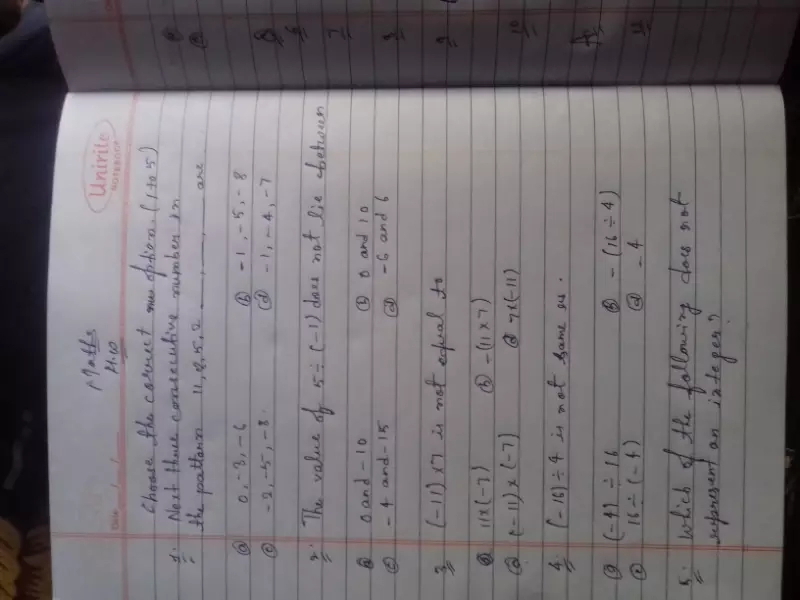 Unirite
NOTEBOOK
Date / /
Maths
H.W
Choose the correct option. (1 to 5)
1. Next three consecutive number in
the pattern 11, 8, 5, 2 __, __, __ are
ⓐ 0, -3, -6 ⓑ -1, -5, -8
ⓒ -2, -5, -8. ⓓ -1, -4, -7
2. The value of 5 ÷ (-1) does not lie between
ⓐ 0 and -10 ⓑ 0 and 10
ⓒ -4 and -15 ⓓ -6 and 6
3 (-11) x 7 is not equal to
ⓐ 11 x (-7) ⓑ -(11 x 7)
(-11) x (-7) ⓓ 7 x (-11)
4. (-16) ÷ 4 is not same as.
ⓐ (-4) ÷ 16 ⓑ - (16 ÷ 4)
ⓒ 16 ÷ (-4) ⓓ -4
5. Which of the following does not
represent an integer?
6
7
8
9
10
12